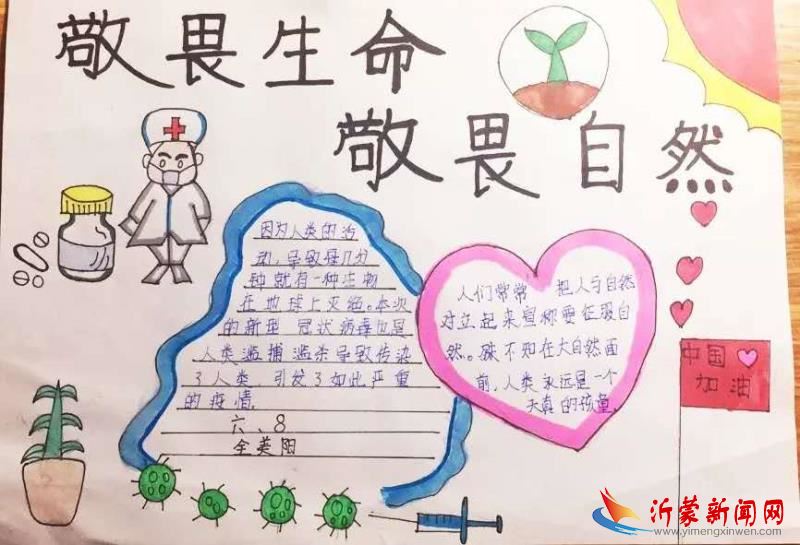 敬畏生命
敬畏自然
因为人类的活
动，导致每几分
钟就有一种生物
在地球上灭绝。本次
的新型 冠状病毒也是
人类滥捕滥杀导致传染
了人类，引发了如此严重
的疫情
六、8
全美阳
人们常常 把人与自然
对立起来宣称要征服自
然。殊不知在大自然面
前，人类永远是一个
天真的孩童。
中国
加油
沂蒙新闻网
www.yimengxinwen.com